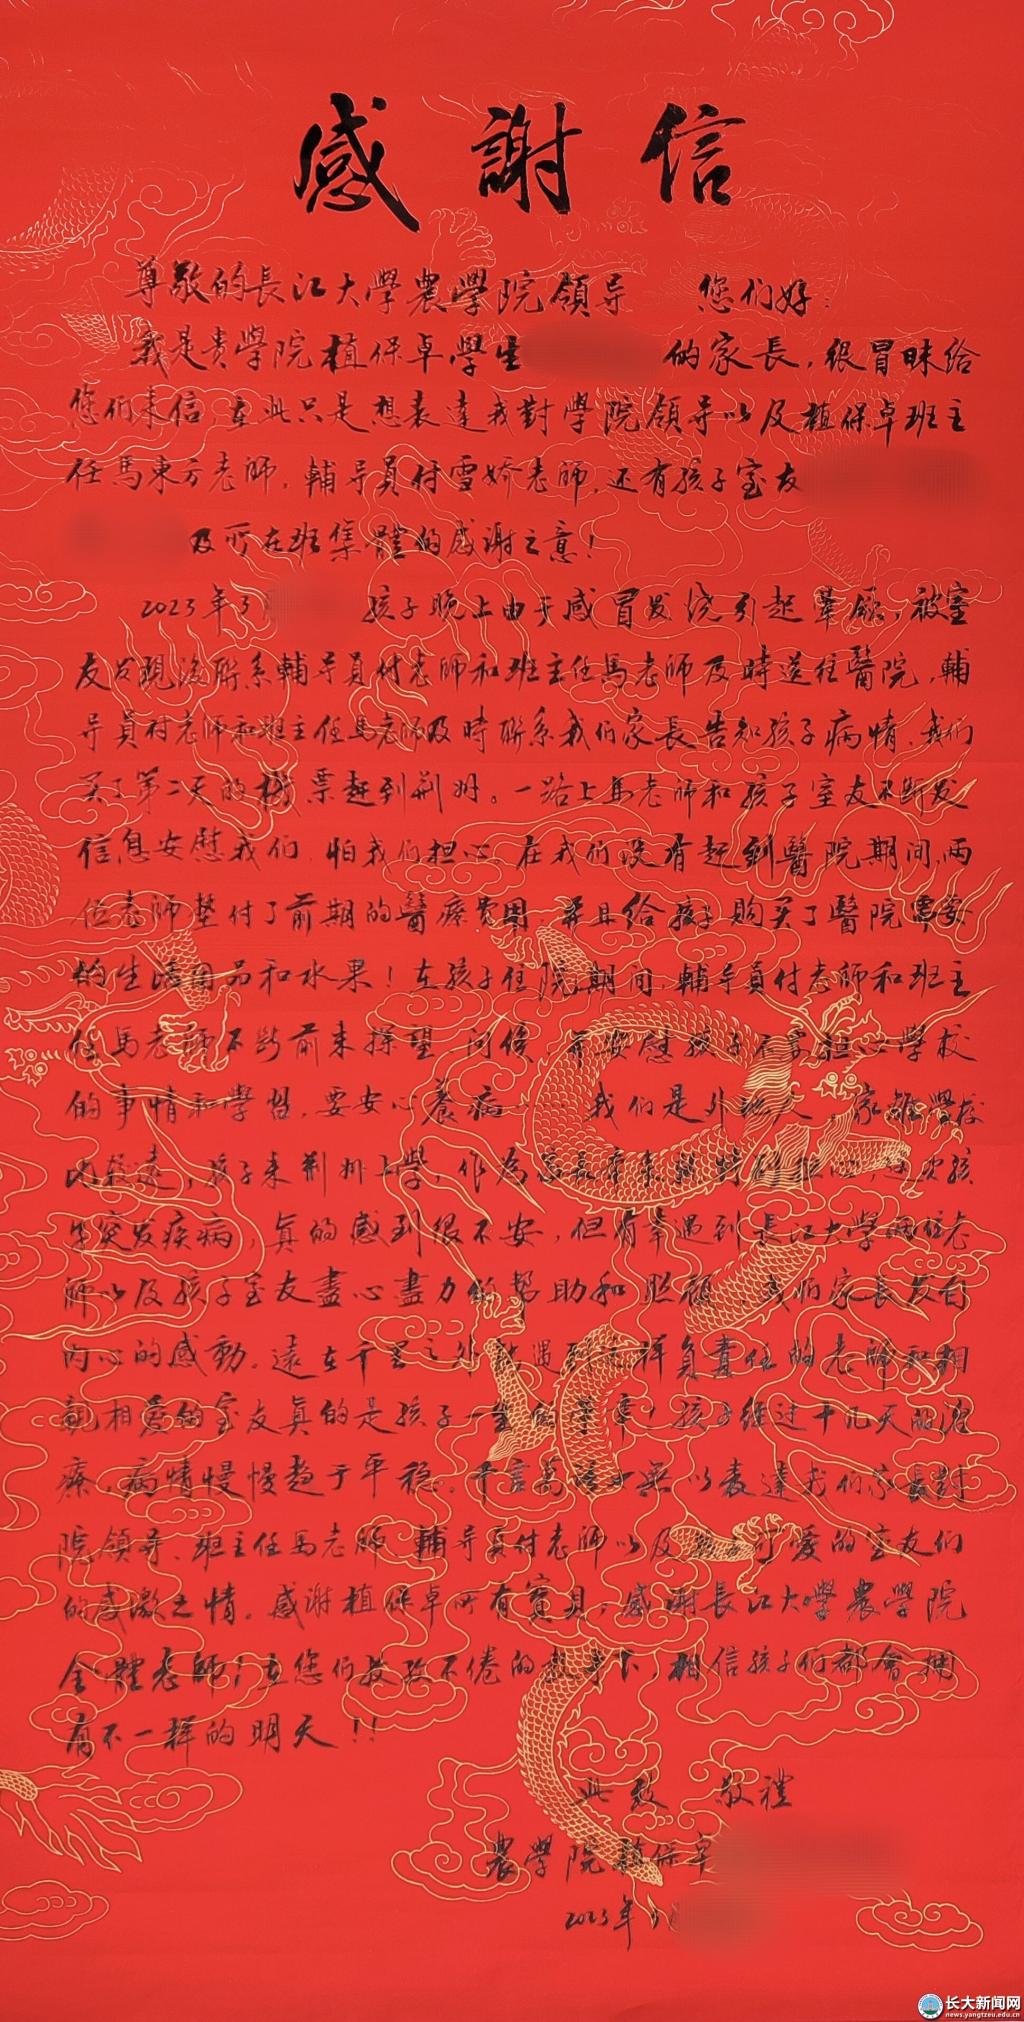 感謝信
尊敬的長江大學農學院領导 您们好：
我是貴學院植保卓學生 的家長，很冒昧给
您们来信，在此只是想表達我對學院領导以及植保卓班主
任馬東方老師，輔导員付雪娇老師，还有孩子室友
及所在班集體的感谢之意！
2023年3 孩子晚上由于感冒发烧引起暈厥，被室
友发現后联系輔导員付老師和班主任馬老師及時送往醫院，輔
导員付老師和班主任馬老師及時联系我们家長告知孩子病情，我们
买了第二天的機票赶到荆州。一路上馬老師和孩子室友不断发
信息安慰我们，怕我们担心，在我们没有赶到醫院期间，两
位老師垫付了前期的醫療費用，并且给孩子购买了醫院需要
的生活用品和水果！在孩子住院期间，輔导員付老師和班主
任馬老師不断前来探望 问候 并安慰孩子不要担心學校
的事情和學習，要安心養病 我们是外地人，家離學校
比较遠，孩子来荆州上學，作為家長 ，这次孩
子突发疾病，真的感到很不安，但有幸遇到長江大學两位老
師以及孩子室友盡心盡力的幫助和照顧 我们家長发自
内心的感動。遠在千里之外 遇到 样負責任的老師和相
親相爱的室友真的是孩子一生的 ！孩子经过十几天的治
療，病情慢慢趋于平稳。千言萬語 無以表達我们家長對
院領导、班主任馬老師 輔导員付老師以及 可愛的室友们
的感激之情。感谢植保卓所有寶貝，感谢長江大學農學院
全體老師！在您们 不倦的 下，相信孩子们都會拥
有不一样的明天！！
此致 敬禮
農學院植保卓
2023年3
长大新闻网
news.yangtzeu.edu.cn